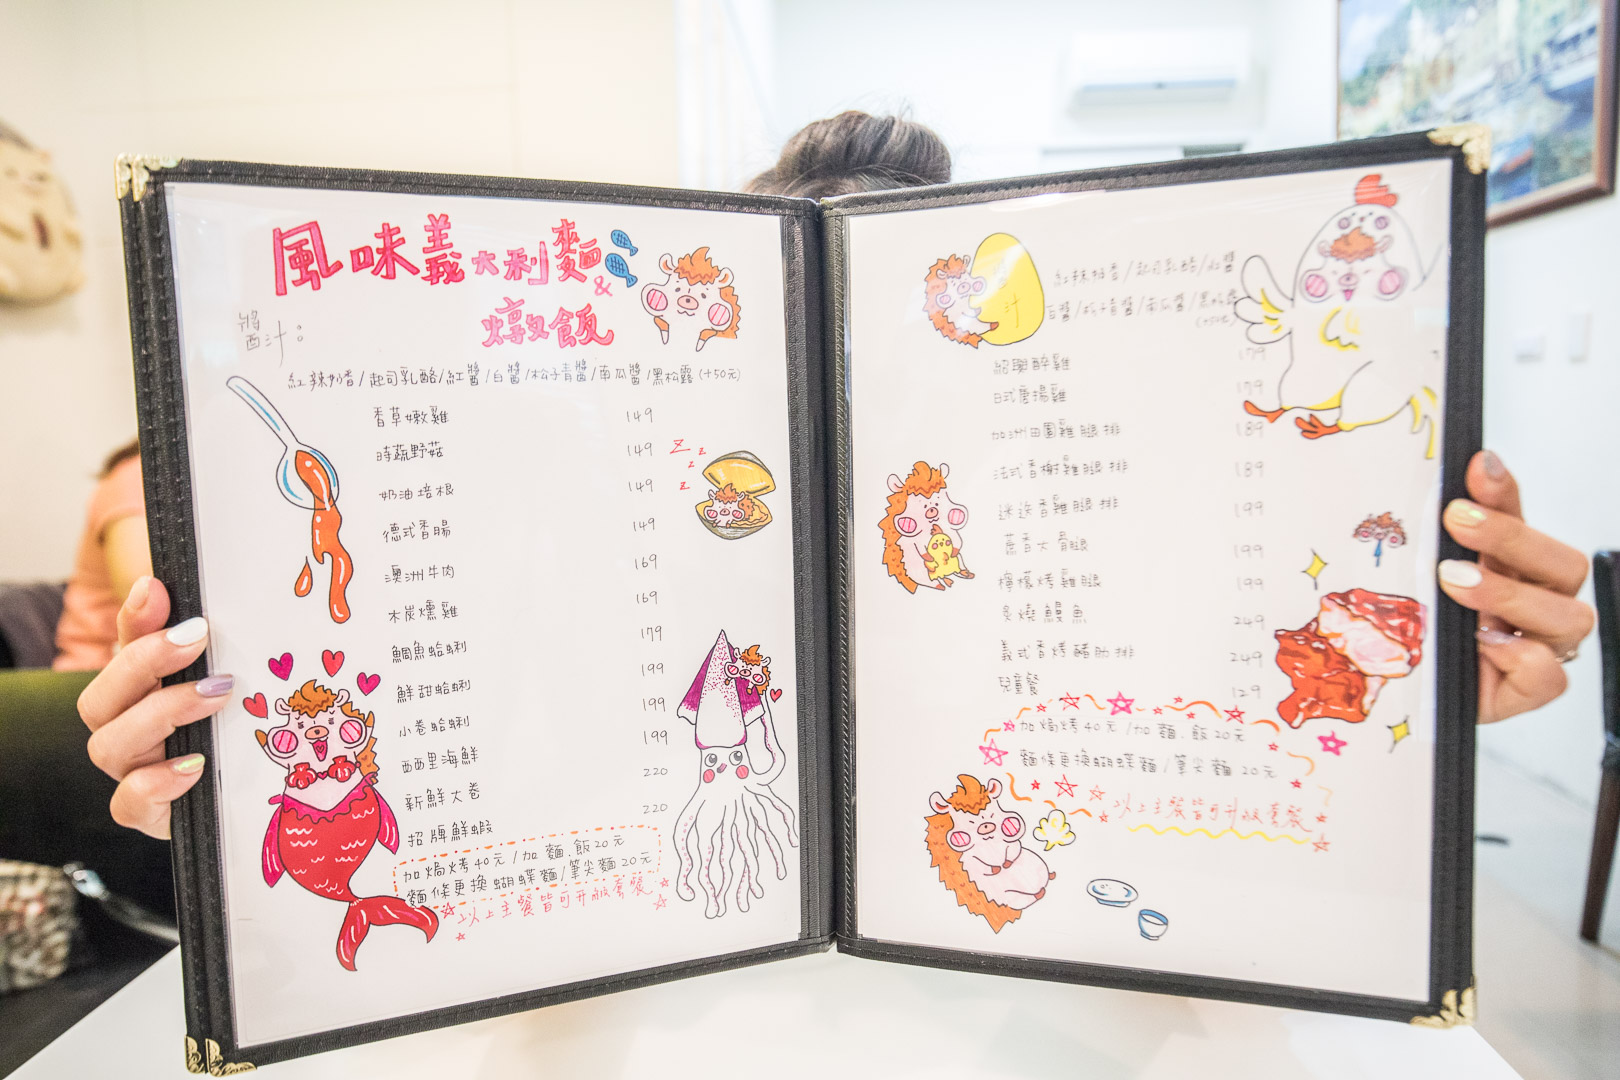 風味義大利麵
&
燉飯
醬汁：
紅辣奶香/起司乳酪/紅醬/白醬/松子青醬/南瓜醬/黑松露(+50元)
香草嫩雞 149
時蔬野菇 149
奶油培根 149
德式香腸 149
澳洲牛肉 169
木炭燻雞 169
鯛魚蛤蜊 179
鮮甜蛤蜊 199
小卷蛤蜊 199
西西里海鮮 199
新鮮大卷 220
招牌鮮蝦 220
加焗烤40元/加麵.飯20元
麵條更換蝴蝶麵/筆尖麵20元
以上主餐皆可升級套餐
z z z z
汁
紅辣奶香/起司乳酪/紅醬
白醬/松子青醬/南瓜醬/黑松露
(+50元)
紹興醉雞 179
日式唐揚雞 179
加洲田園雞腿排 189
法式香榭雞腿排 189
迷迭香雞腿排 199
蒜香大骨腿 199
檸檬烤雞腿 199
炙燒鰻魚 249
義式香烤豬肋排 249
兒童餐 129
加焗烤40元/加麵.飯20元
麵條更換蝴蝶麵/筆尖麵20元
以上主餐皆可升級套餐